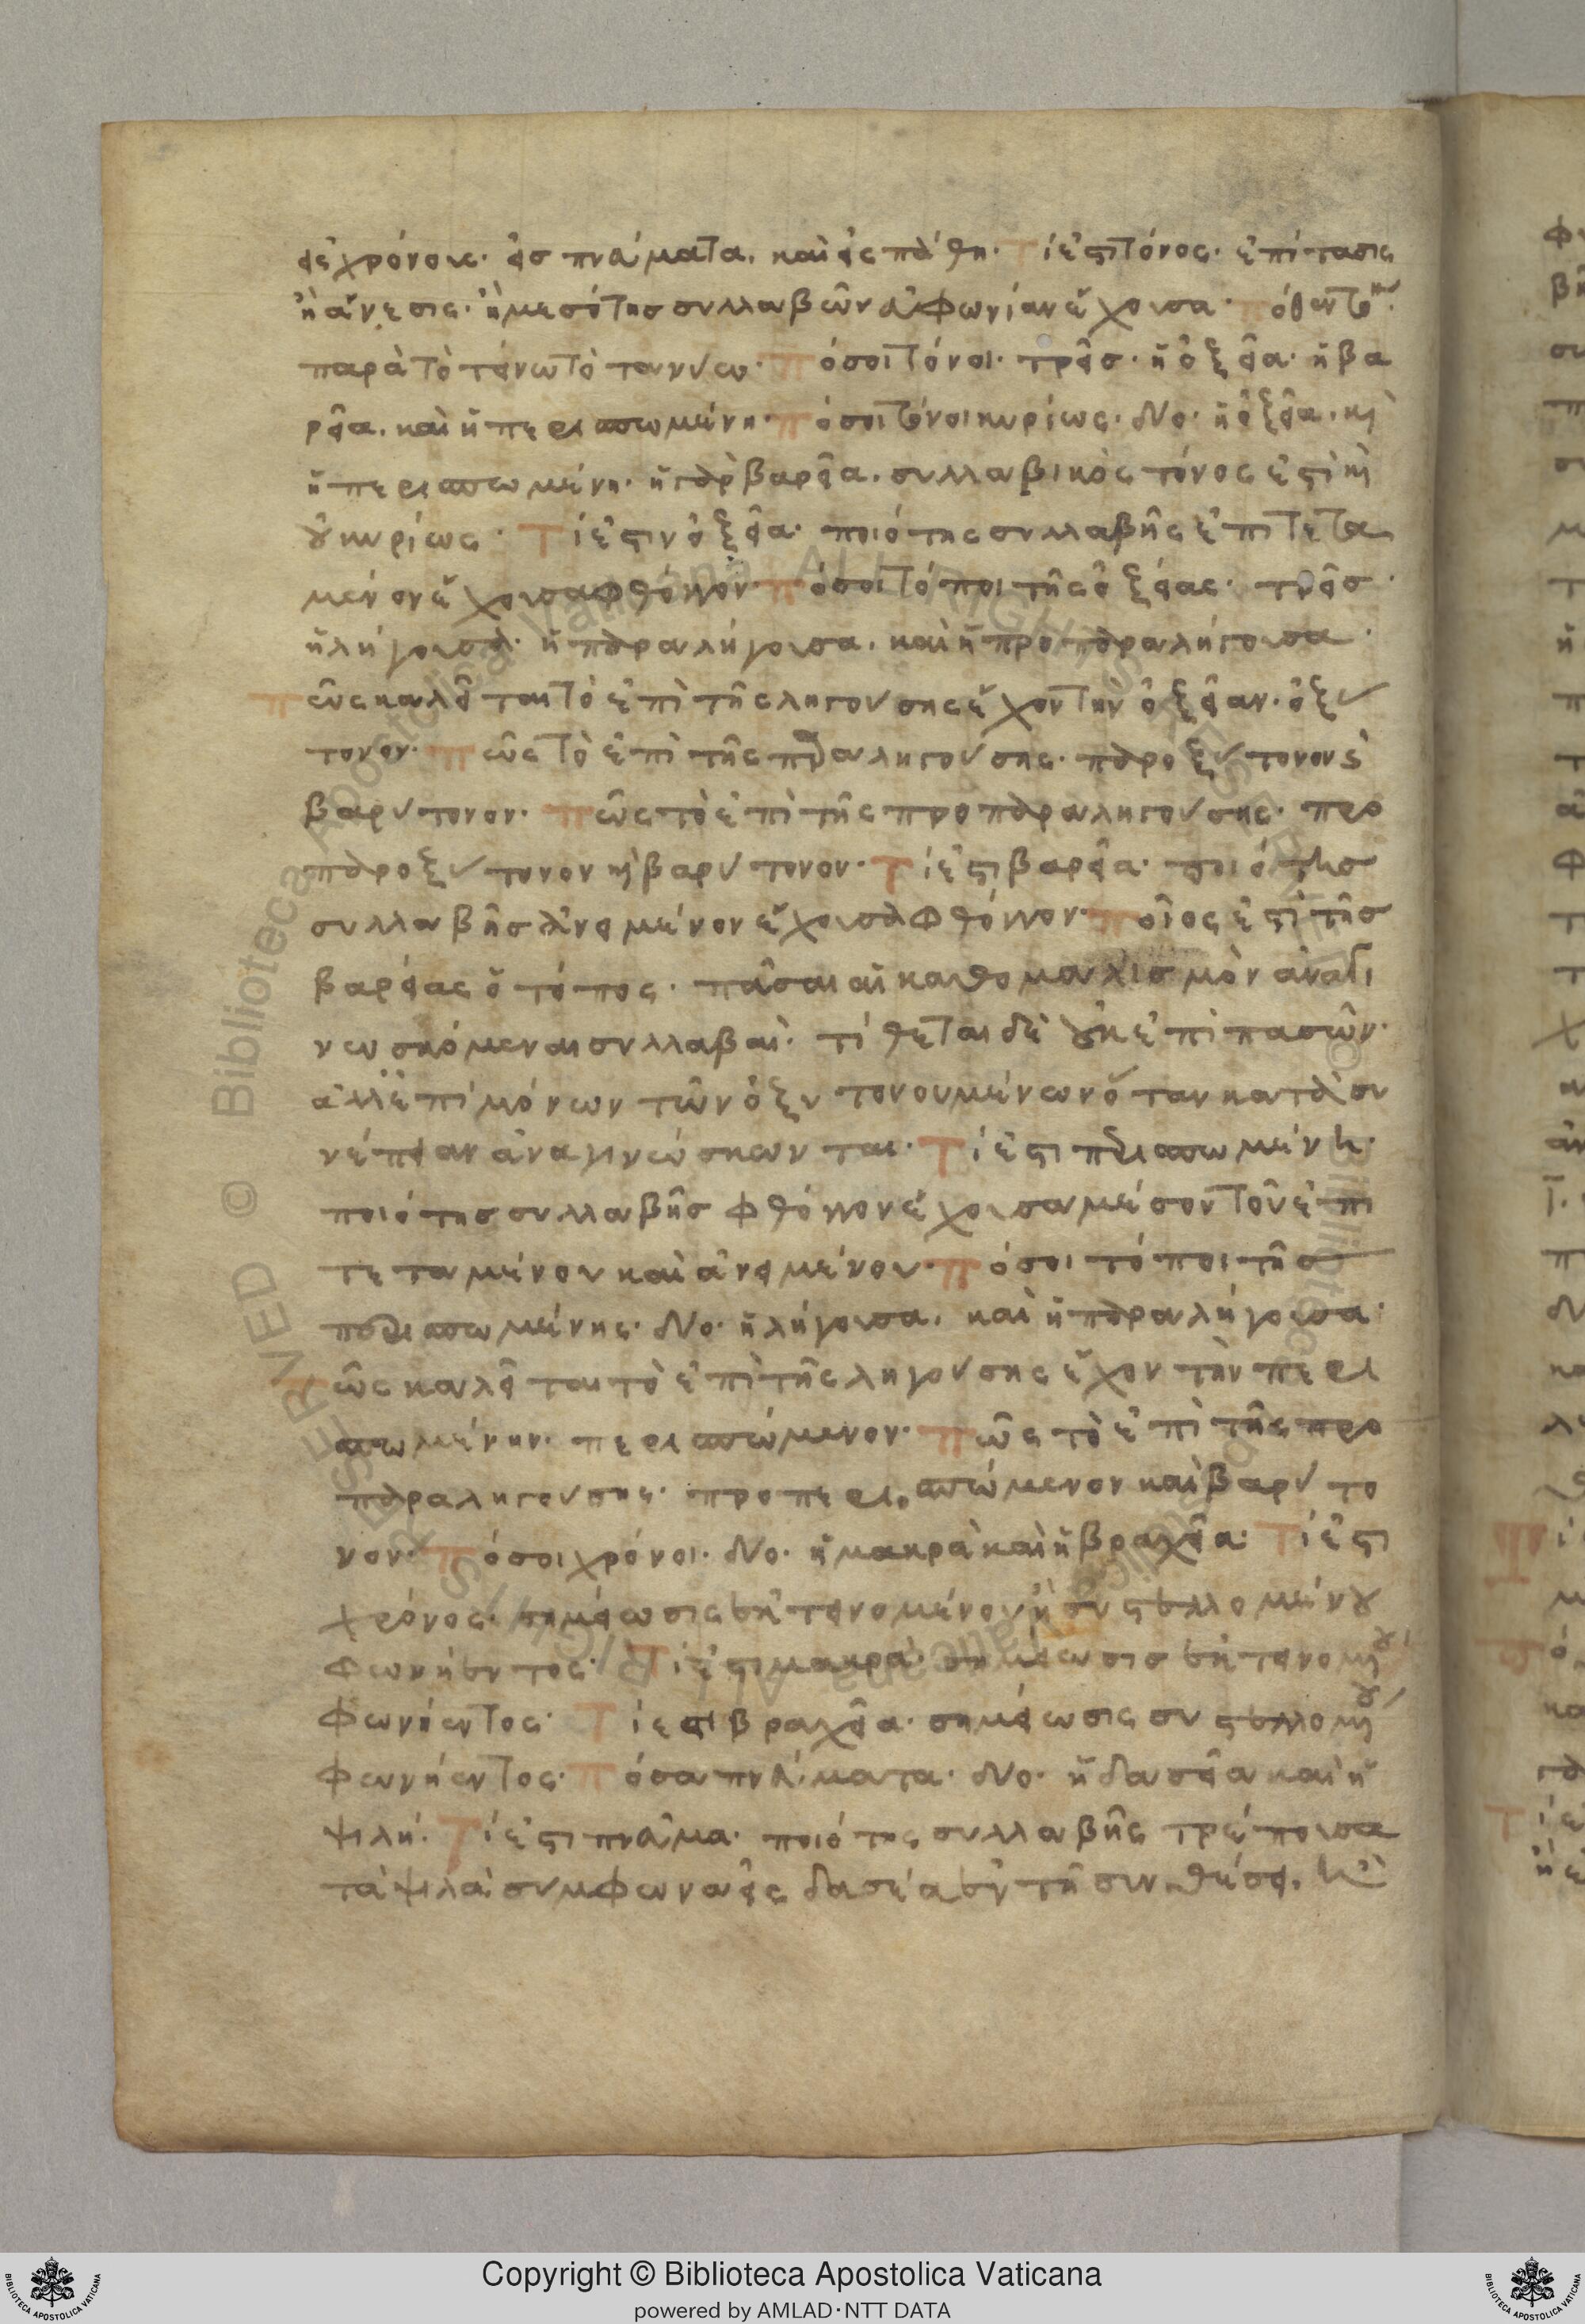 εἰς χρόνους· εἰς πνεύματα, καὶ εἰς πάθη· Τί ἐστι τόνος· ἐπίτασις
ἢ ἄνεσις· ἢ μεσότης συλλαβῶν εὐφωνίαν ἔχουσα· πόθεν
παρὰ τὸ τείνω τὸ τανύω· πόσοι τόνοι· τρεῖς· ἡ ὀξεῖα· ἡ βα
ρεῖα, καὶ ἡ περισπωμένη· πόσοι τόνοι κυρίως· δύο· ἡ ὀξεῖα, καὶ
ἡ περισπωμένη· ἡ γὰρ βαρεῖα, συλλαβικὸς τόνος ἐστὶ καὶ
οὐ κυρίως· Τί ἐστιν ὀξεῖα· ποιότης συλλαβῆς ἐπιτετα
μένον ἔχουσα φθόγγον· πόσοι τόποι τῆς ὀξείας· τρεῖς·
ἡ λήγουσα· ἡ παραλήγουσα, καὶ ἡ προπαραλήγουσα·
πῶς καλεῖται τὸ ἐπὶ τῆς ληγούσης ἔχον τὴν ὀξεῖαν· ὀξύ
τονον· πῶς τὸ ἐπὶ τῆς παραληγούσης· παροξύτονον καὶ
βαρύτονον· πῶς τὸ ἐπὶ τῆς προπαραληγούσης· προ
παροξύτονον καὶ βαρύτονον· Τί ἐστι βαρεῖα· ποιότης
συλλαβῆς ἀνειμένον ἔχουσα φθόγγον· ποῖος ἐστὶ τῆς
βαρείας ὁ τόπος· πᾶσαι αἱ καθομαλισμὸν ἀναγι
νωσκόμεναι συλλαβαί· τίθεται δὲ οὐκ ἐπὶ πασῶν·
ἀλλ' ἐπὶ μόνων τῶν ὀξυτονουμένων ὅταν κατὰ συ
νέπειαν ἀναγινώσκωνται· Τί ἐστι περισπωμένη·
ποιότης συλλαβῆς φθόγγον ἔχουσα μέσον τοῦ ἐπι
τεταμένου καὶ ἀνειμένου· πόσοι τόποι τῆς
περισπωμένης· δύο· ἡ λήγουσα, καὶ ἡ παραλήγουσα·
πῶς καλεῖται τὸ ἐπὶ τῆς ληγούσης ἔχον τὴν περι
σπωμένην· περισπώμενον· πῶς τὸ ἐπὶ τῆς προ
παραληγούσης· προπερισπώμενον καὶ βαρύτο
νον· πόσοι χρόνοι· δύο· ἡ μακρὰ καὶ ἡ βραχεῖα· Τί ἐστι
χρόνος· σημείωσις ἐκτεινομένου ἢ συστελλομένου
φωνήεντος· Τί ἐστι μακρά· σημείωσις ἐκτεινομένου
φωνήεντος· Τί ἐστι βραχεῖα· σημείωσις συστελλομένου
φωνήεντος· πόσα πνεύματα· δύο· ἡ δασεῖα καὶ ἡ
ψιλή· Τί ἐστι πνεῦμα· ποιότης συλλαβῆς τρέπουσα
τὰ ψιλὰ σύμφωνα εἰς δασέα ἐν τῇ συνθέσει,
Copyright © Biblioteca Apostolica Vaticana
powered by AMLAD·NTT DATA